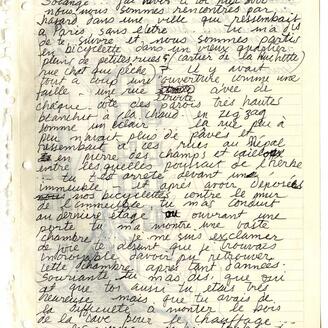 Solange, j'ai rêvé
nous nous sommes rencontrés par
hasard dans une ville qui ressemblait
à Paris sans l'être tu m'a
de te suivre et nous sommes partis
en bicyclette dans un vieux quartier
pleins de petites rues (quartier de la huchette)
rue chat qui pêche) il y avait
tout à coup une ouverture comme une
faille une rue étroite avec de
chaque côté des parois très hautes
blanchet à la chaud en zig zag
comme un éclair la rue peu à
peu n'avait plus de pavés et
ressemblait à ces rues au Népal
en pierre des champs et cailloux
entre lesquelles poussait de l'herbe
tu t'es arrêté devant un
immeuble et après avoir déposées
nos bicyclettes contre le mur
de l'immeuble tu m'as conduit
au dernier étage ou ouvrant une
porte tu m'a montré une vaste
chambre je me suis exclamer
de joie te disant que je trouvais
incroyable d'avoir pu retrouver
cette chambre après tant d'années.
Souriante tu m'as dis que oui
et que toi aussi tu étais très
heureuse mais que tu avais de
la difficulté à monter le bois
de la cave pour le chauffage